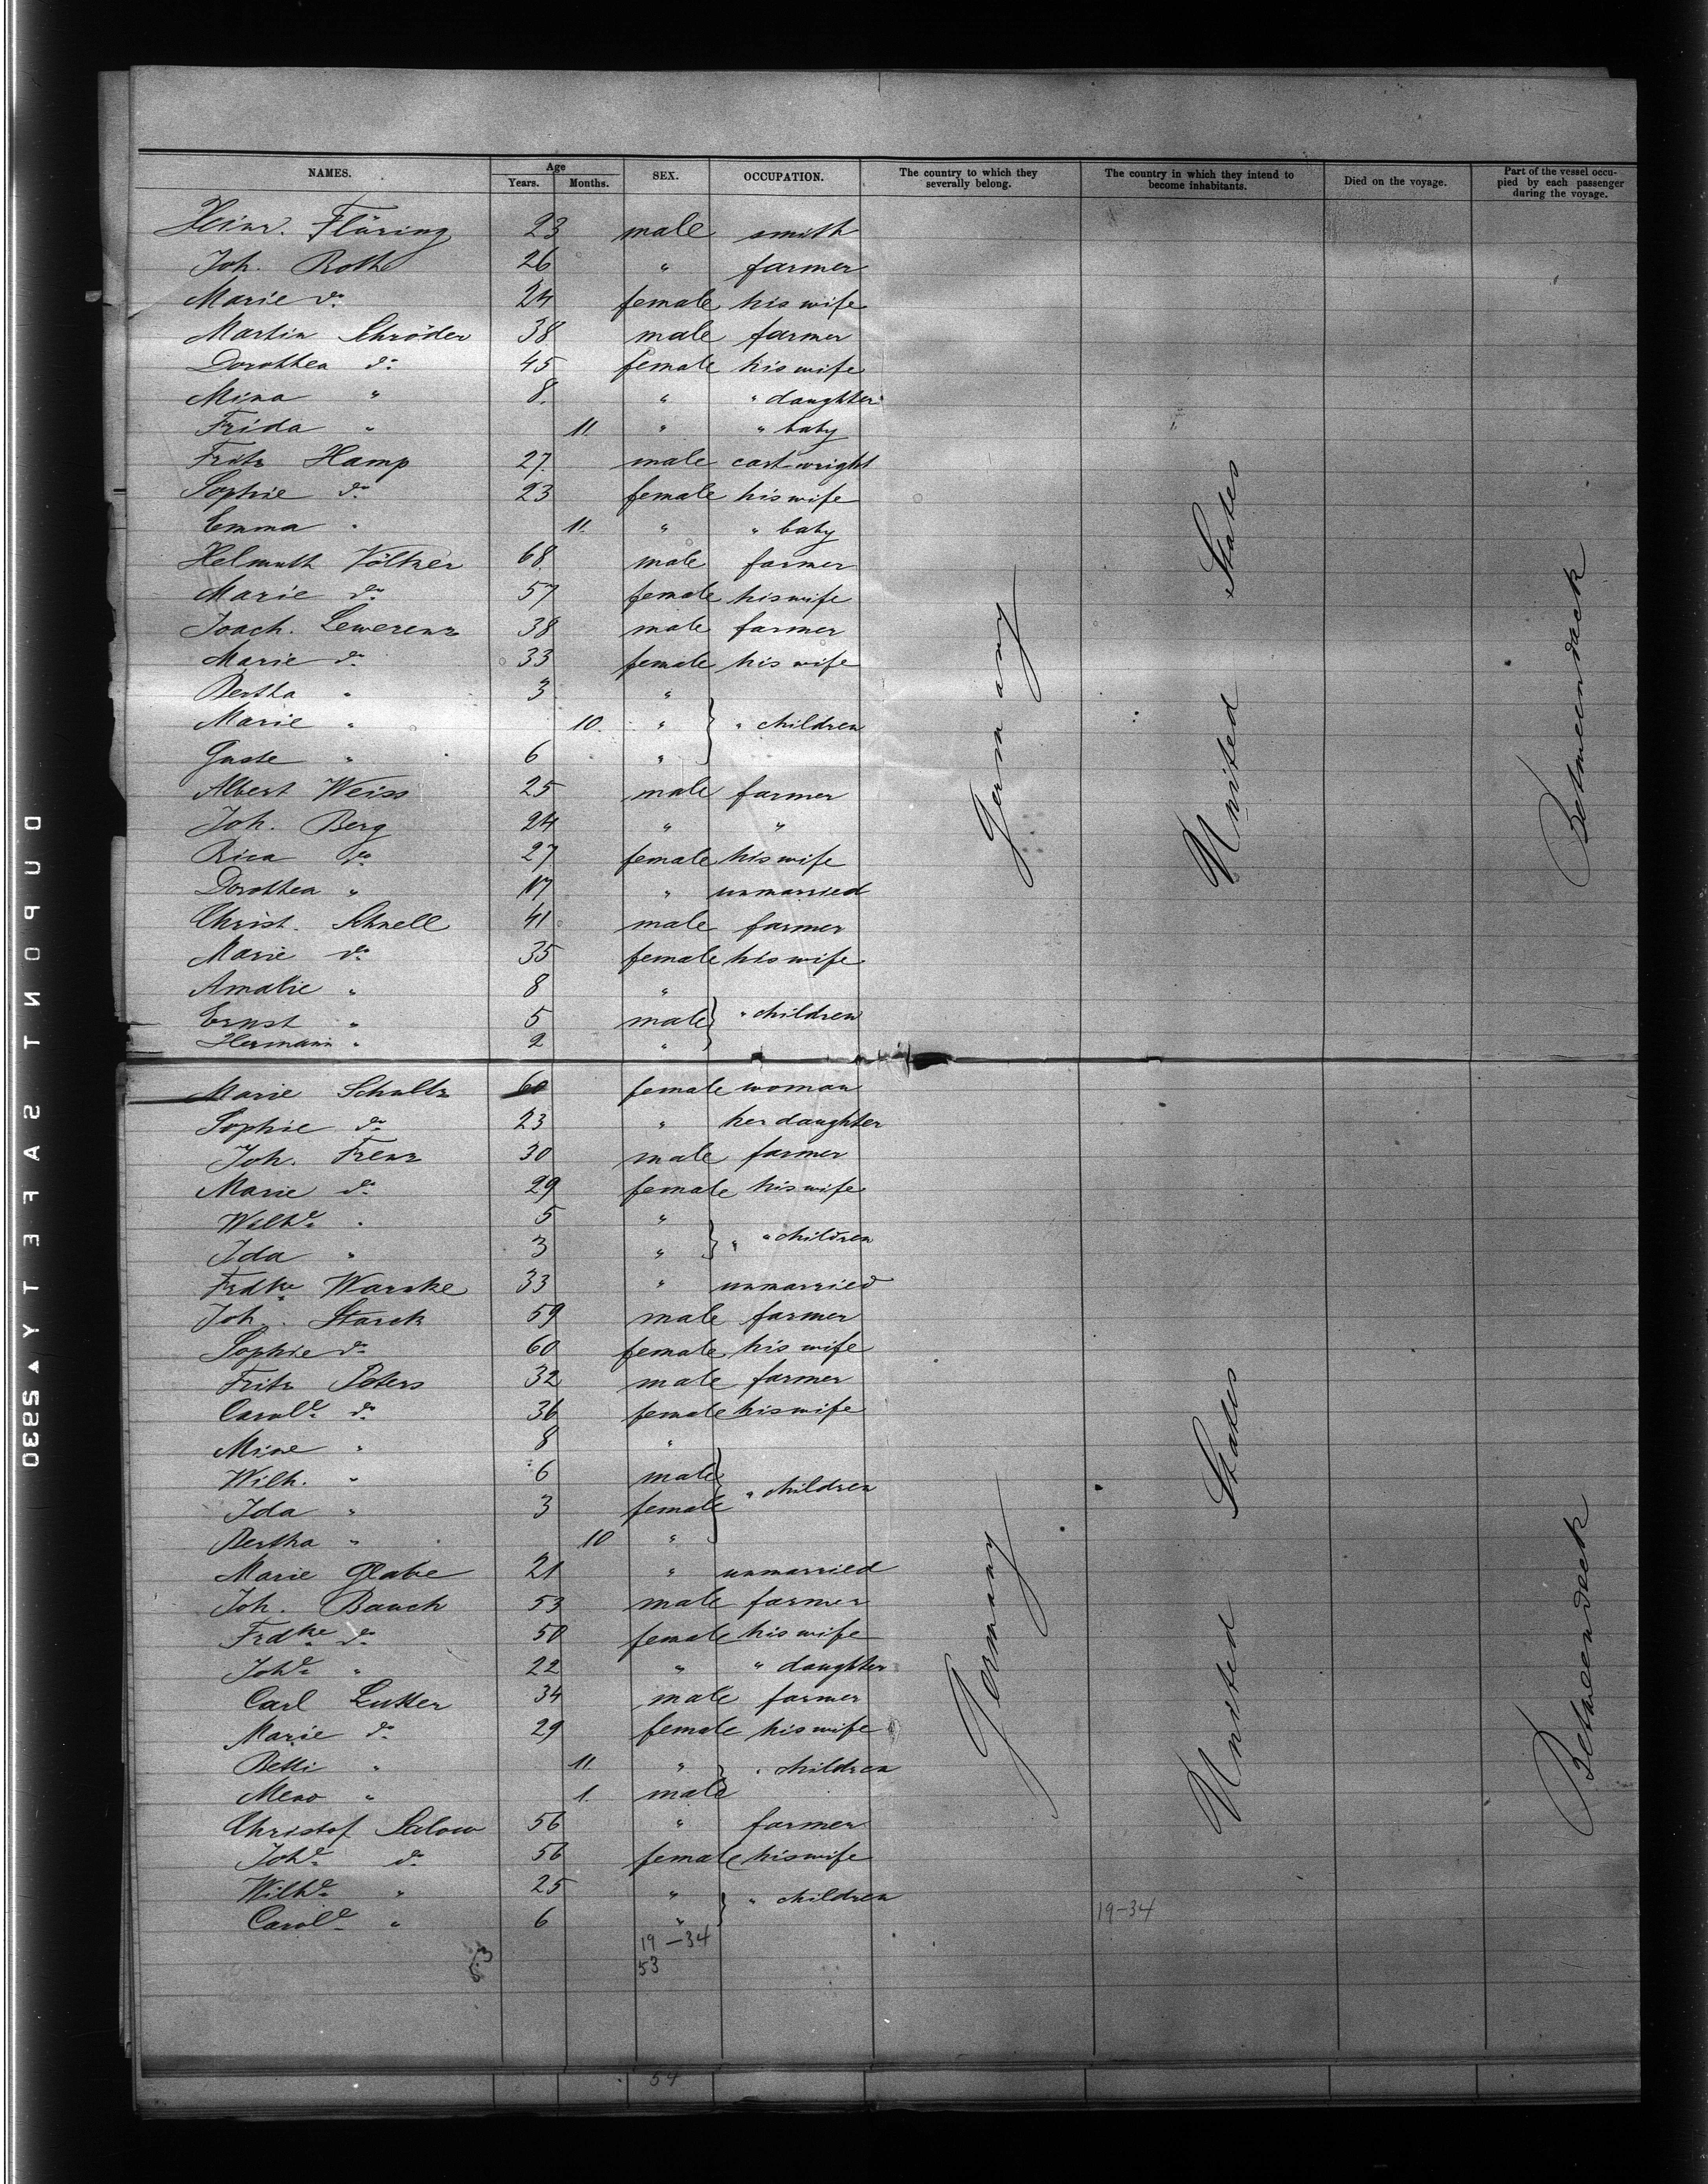 NAMES. Age Years. Months. SEX. OCCUPATION. The country to which they severally belong. The country in which they intend to become inhabitants. Died on the voyage. Part of the vessel occupied by each passenger during the voyage.
Heinr. Flüring 23 male smith
Joh. Roth 26 " farmer
Marie do 24 female his wife
Martin Schröder 38 male farmer
Dorothea do 45 female his wife
Mina " 8. " " daughter
Frida " 11. " " baby
Fritz Hamp 27. male cart wright
Sophie do 23 female his wife
Emma " 11. " " baby
Helmuth Völtzer 68. male farmer
Marie do 57 female his wife
Joach. Lewerenz 38 male farmer
Marie do 33 female his wife
Bertha " 3 "
Marie " 10. " " children
Guste " 6 "
Albert Weiss 25 male farmer
Joh. Berg 24 " "
Rica do 27 female his wife
Dorothea " 17 " unmarried
Christ. Schnell 41 male farmer
Marie do 35 female his wife
Amalie " 8 "
Ernst " 5 male " children
Hermann " 2 "
Germany
United States
Betweendeck
Marie Schultz 60 female woman
Sophie do 23 " her daughter
Joh. Frenz 30 male farmer
Marie do 29 female his wife
Wilhe " 5 "
Ida " 3 " " " children
Frdke Warnke 33 " unmarried
Joh. Starck 59 male farmer
Sophie do 60 female his wife
Fritz Peters 32 male farmer
Carole do 36 female his wife
Mine " 8 "
Wilh. " 6 male
Ida " 3 female " children
Bertha " 10 "
Marie Glabe 21 " unmarried
Joh. Bauch 53 male farmer
Frdke do 50 female his wife
Johe " 22 " " daughter
Carl Lutter 34 male farmer
Marie do 29 female his wife
Betti " 11. " " children
Meno " 1. male
Christof Salow 56 " farmer
Johe do 56 female his wife
Wilhe " 25 " " children
Carole " 6 "
Germany
United States
Betweendeck
19-34
53 19-34
53
54
DUPONT SAFETY ▲ 2330